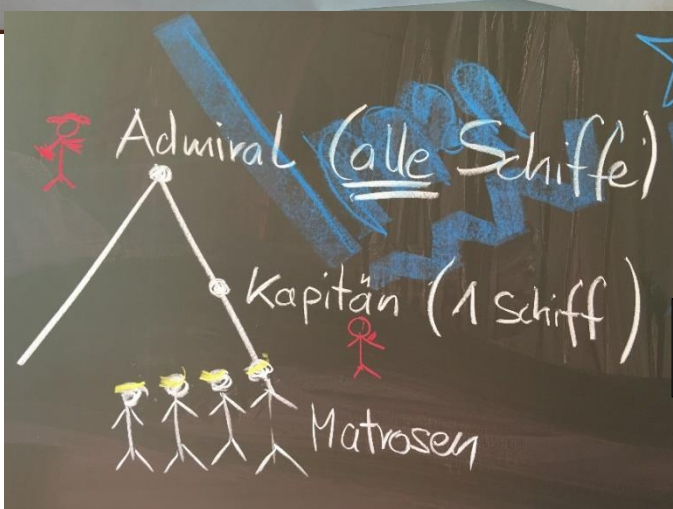 Admiral (alle Schiffe)
Kapitän (1 Schiff)
Matrosen